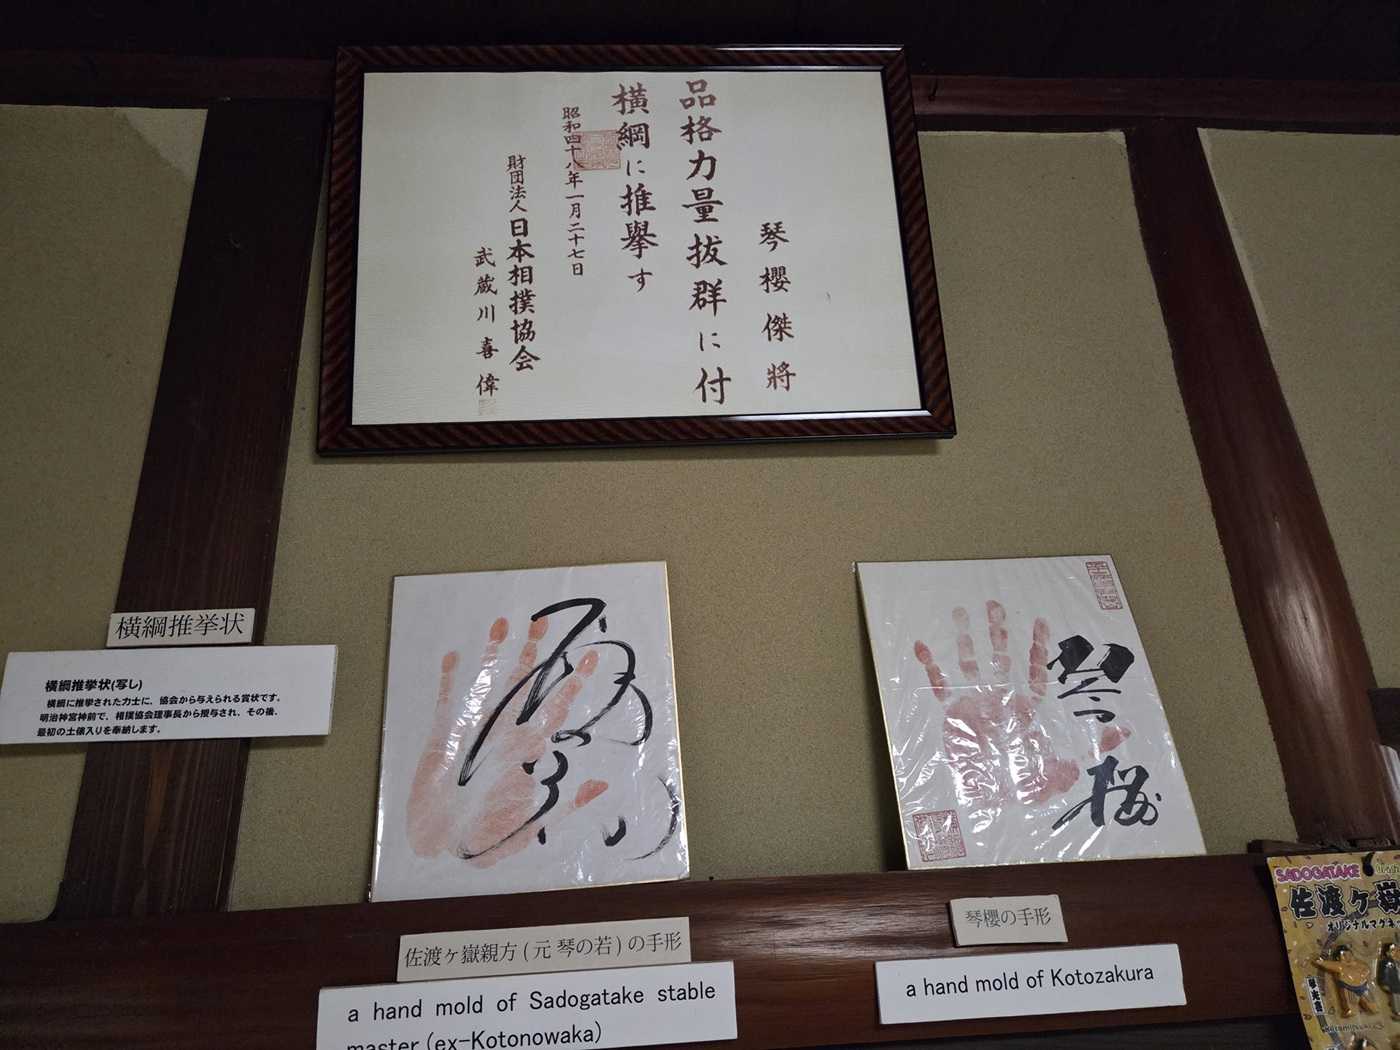 琴櫻傑將
品格力量抜群に付
横綱に推擧す
昭和四十八年一月二十七日
財団法人日本相撲協会
武蔵川喜偉
横綱推挙状
横綱推挙状(写し)
横綱に推挙された力士に、協会から与えられる賞状です。
明治神宮神前で、相撲協会理事長から授与され、その後、
最初の土俵入りを奉納します。
琴櫻
佐渡ケ嶽親方(元 琴の若)の手形
a hand mold of Sadogatake stable
master (ex-Kotonowaka)
琴櫻の手形
a hand mold of Kotozakura
SADOGATAKE
佐渡ケ嶽
オリジナルマグネ